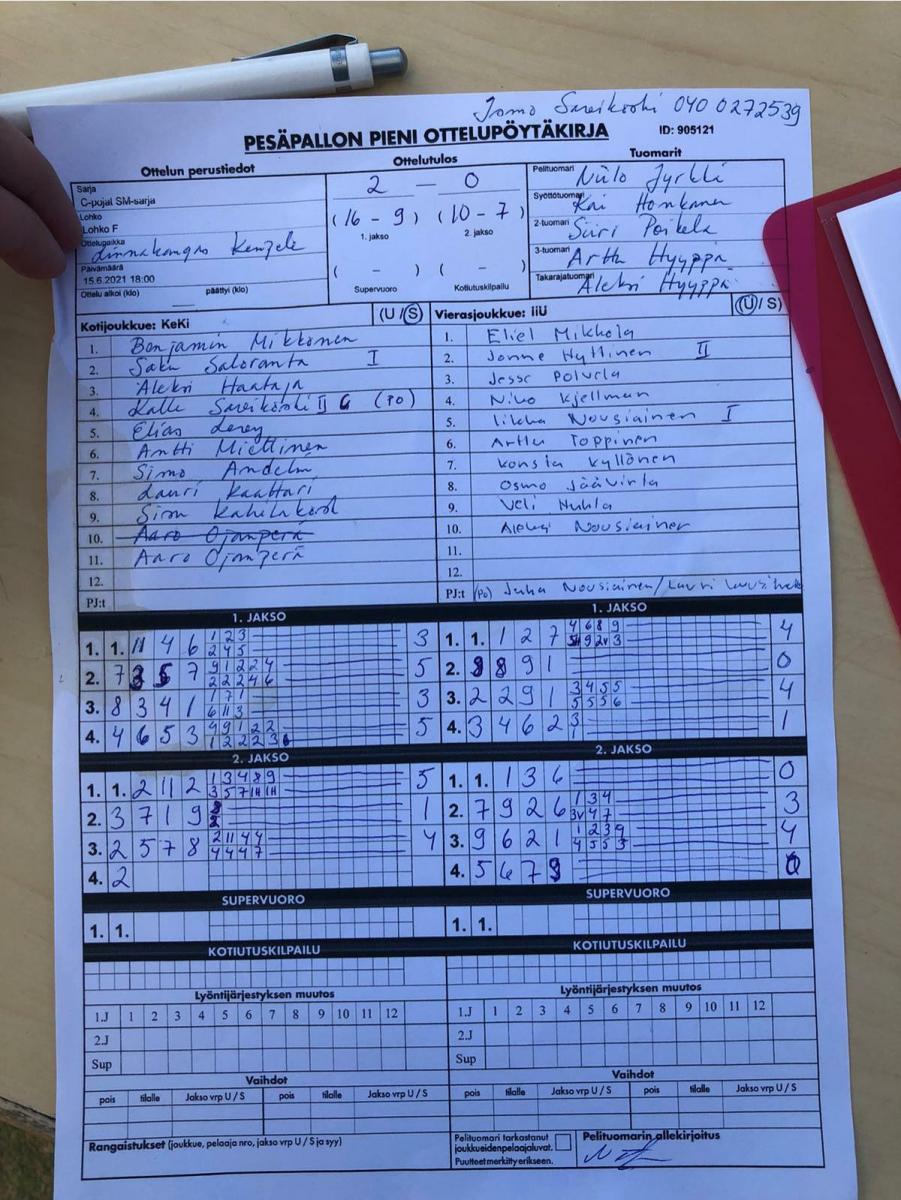 Jomo Sareikoski 040 0272539
PESÄPALLON PIENI OTTELUPÖYTÄKIRJA
ID: 905121
Ottelun perustiedot
Ottelutulos
Tuomarit
Sarja
C-pojat SM-sarja
Lohko
Lohko F
Ottelupaikka
Linnakangas Kempele
Päivämäärä
15.6.2021 18:00
Ottelu alkoi (klo) päättyi (klo)
2 – 0
(16 - 9) (10 - 7)
1. jakso 2. jakso
( - ) ( - )
Supervuoro Kotiutuskilpailu
Pelituomari Niilo Jyrkkä
Syöttötuomari Kai Honkanen
2-tuomari Siiri Poikela
3-tuomari Arttu Hyyppä
Takarajatuomari Aleksi Hyyppä
Kotijoukkue: KeKi (U / S)
1. Benjamin Mikkonen
2. Saku Saloranta I
3. Aleksi Haataja
4. Kalle Sareikoski II (PO)
5. Elias
6. Antti Miettinen
7. Simo
8. Lauri Kaattari
9.
10. Aaro Ojanperä
11. Aaro Ojanperä
12.
PJ:t
Vierasjoukkue: IiU (U / S)
1. Eliel Mikkola
2. Jonne Hyttinen II
3. Jesse Polvela
4. Niko Kjellman
5. Iikka Nousiainen I
6. Arttu Toppinen
7. Konsta Kyllönen
8. Osmo Jäävirta
9. Veli Nuhla
10. Aleksi Nousiainen
11.
12.
PJ:t (PO) Juha Nousiainen/Lauri
1. JAKSO
1. 1. 11 4 6 1 2 3 3
2 4 5
2. 7 5 7 9 1 2 2 4 5
2 2 2 4 6
3. 8 3 4 1 1 7 1 3
6 11 3
4. 4 6 5 3 9 9 1 2 2 5
1 2 2 2 3
1. JAKSO
1. 1. 1 2 7 4 6 8 9 4
9 2V 3
2. 8 9 1 0
3. 2 2 9 1 3 4 5 5 4
5 5 5 6
4. 3 4 6 2 3 1
2. JAKSO
1. 1. 2 11 2 1 3 4 8 9 5
3 5 7 11 11
2. 3 7 1 9 8 1
2
3. 2 5 7 8 2 11 4 4 4
4 4 4 7
4. 2
2. JAKSO
1. 1. 1 3 6 0
2. 7 9 2 6 1 3 4 3
3V 4 7
3. 9 6 2 1 1 2 3 9 4
4 5 5 5
4. 5 6 7 9 0
SUPERVUORO
1. 1.
SUPERVUORO
1. 1.
KOTIUTUSKILPAILU
KOTIUTUSKILPAILU
Lyöntijärjestyksen muutos
1.J 1 2 3 4 5 6 7 8 9 10 11 12
2.J
Sup
Lyöntijärjestyksen muutos
1.J 1 2 3 4 5 6 7 8 9 10 11 12
2.J
Sup
Vaihdot
pois tilalle Jakso vrp U / S pois tilalle Jakso vrp U / S
Vaihdot
pois tilalle Jakso vrp U / S pois tilalle Jakso vrp U / S
Rangaistukset (joukkue, pelaaja nro, jakso vrp U / S ja syy)
Pelituomari tarkastanut
joukkueiden pelaajaluvat.
Puutteet merkitty erikseen.
Pelituomarin allekirjoitus